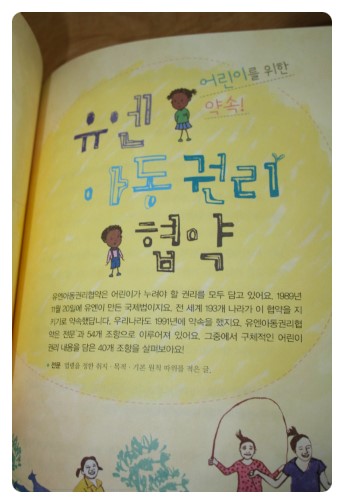 어린이를 위한
약속!
유엔
아동 권리
협약
유엔아동권리협약은 어린이가 누려야 할 권리를 모두 담고 있어요. 1989년
11월 20일에 유엔이 만든 국제법이지요. 전 세계 193개 나라가 이 협약을 지
키기로 약속했답니다. 우리나라도 1991년에 약속을 했지요. 유엔아동권리협
약은 전문*과 54개 조항으로 이루어져 있어요. 그중에서 구체적인 어린이
권리 내용을 담은 40개 조항을 살펴보아요!
* 전문 법령을 정한 취지 · 목적 · 기본 원칙 따위를 적은 글.